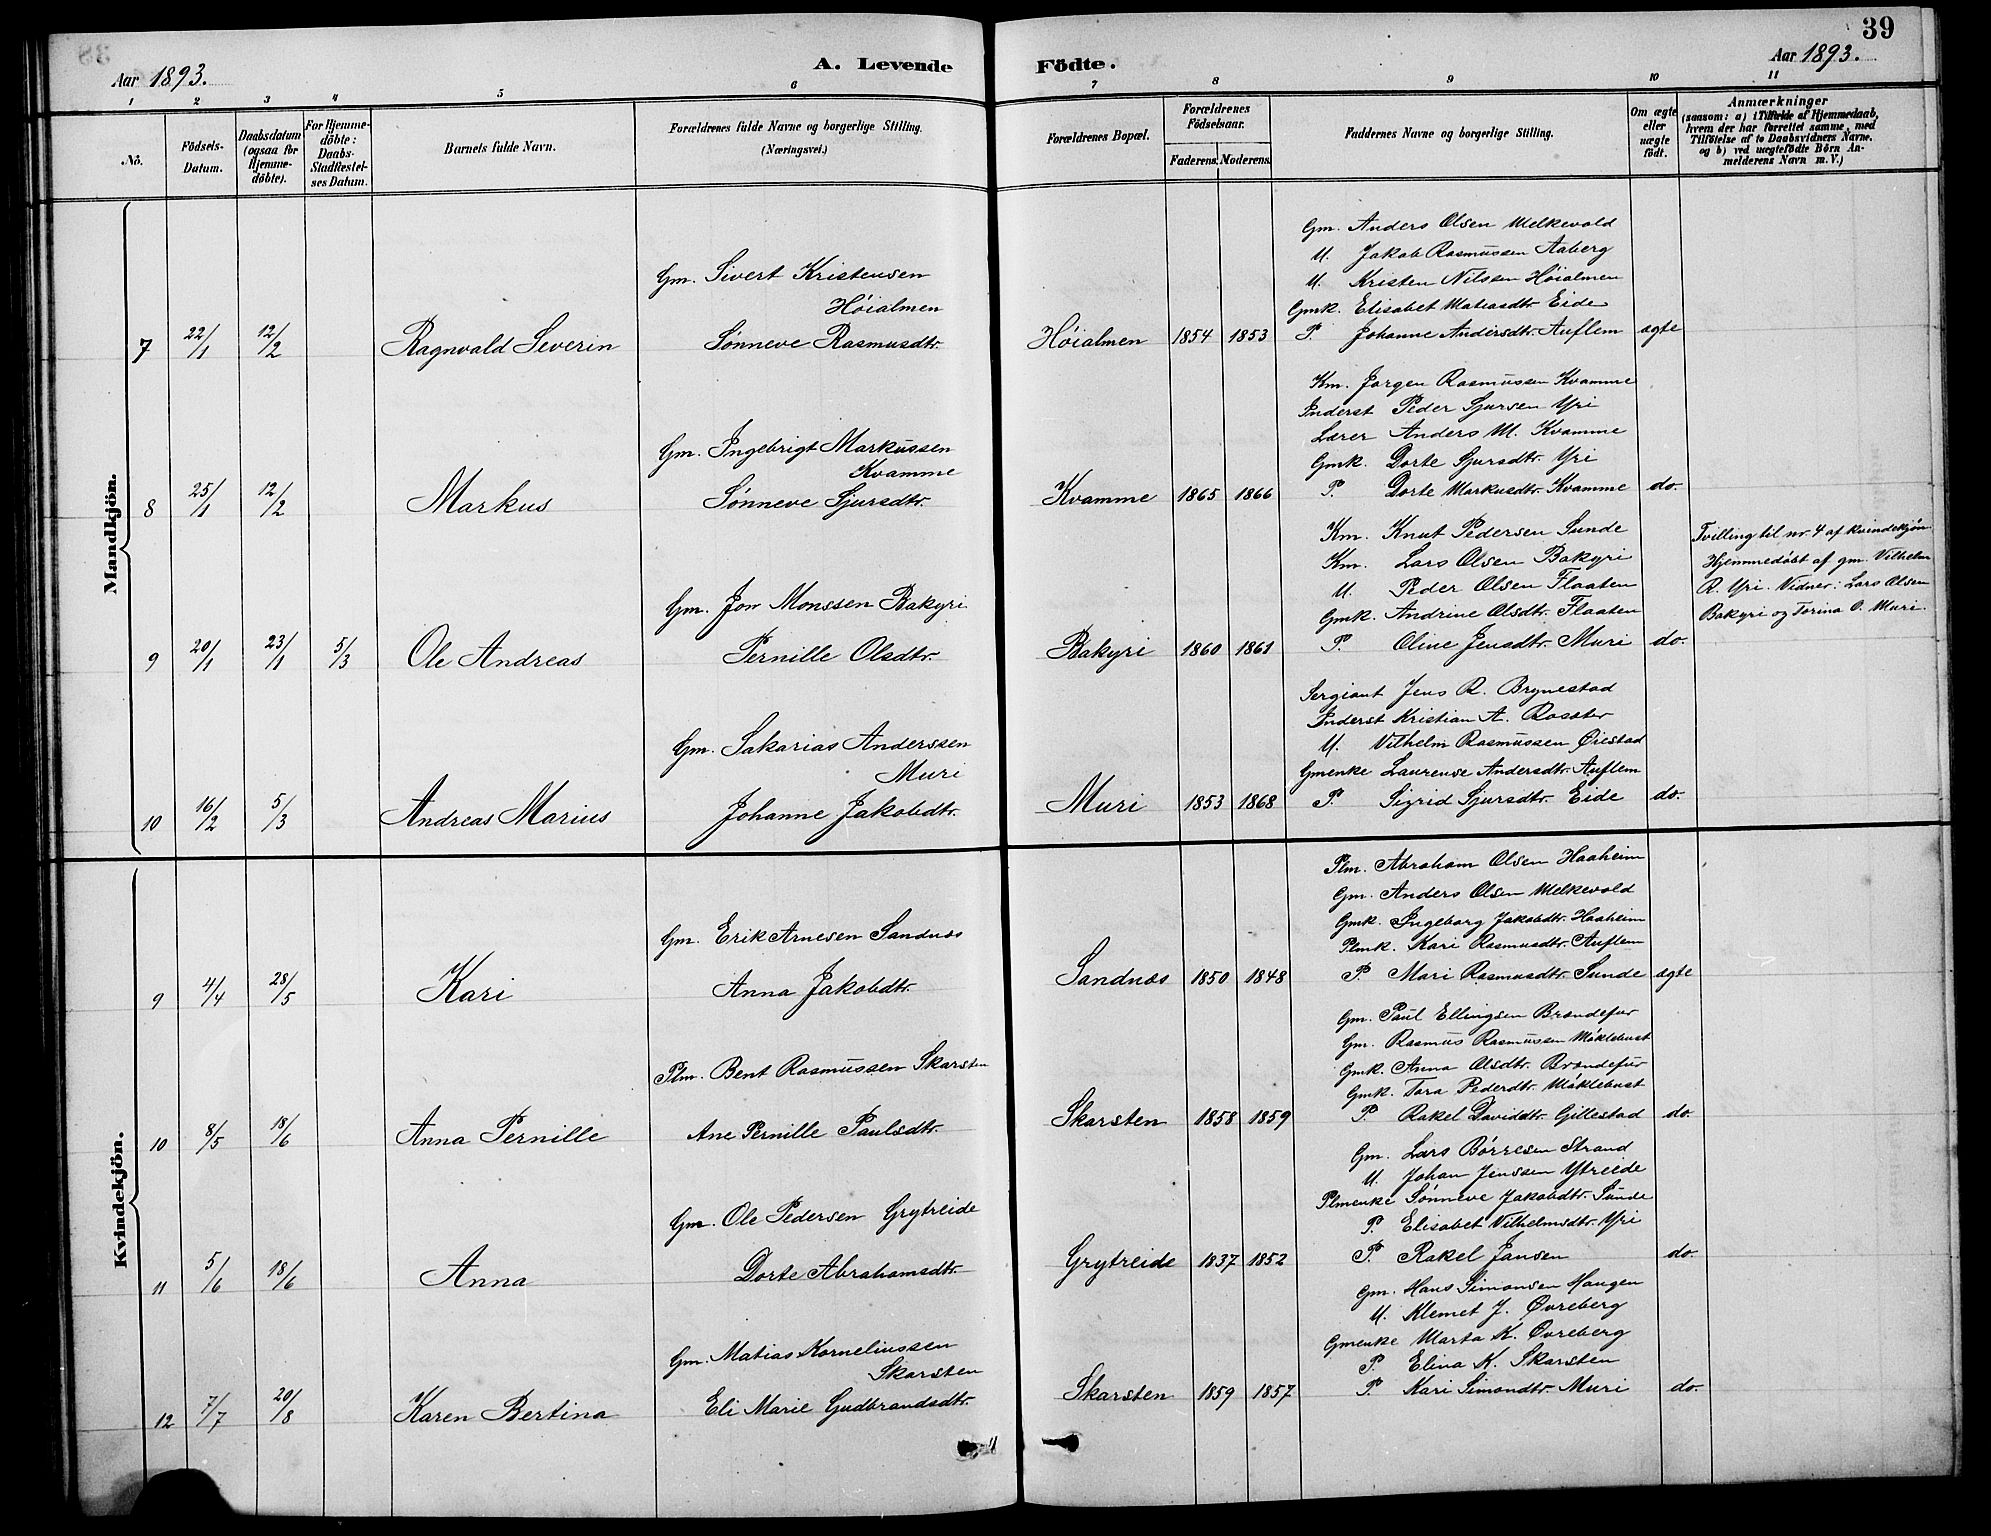 39
Aar 1893.
A. Levende Fødte.
Aar 1893.
1 2 3 4 5 6 7 8 9 10 11
No.
Födsels-Datum.
Daabsdatum (ogsaa for Hjemme-döbte).
For Hjemme-döbte: Daabs-Stadfestel-ses Datum.
Barnets fulde Navn.
Forældrenes fulde Navne og borgerlige Stilling.
(Næringsvei.)
Forældrenes Bopæl.
Forældrenes Födselsaar.
Faderens. Moderens.
Faddernes Navne og borgerlige Stilling.
Om ægte eller uægte födt.
Anmærkninger
(saasom: a) i Tilfælde af Hjemmedaab,
hvem der har forrettet samme, med
Tilföielse af to Daabsvidners Navne.
og b) ved uægtefödte Börn An-
melderens Navn m. V.)
Mandkjön.
Gm. Anders Olsen Melkevold
U. Jakob Rasmussen Aaberg
Gm. Sivert Kristensen
U. Kristen Nilssen Høialmen
Høialmen
Gmk. Elisabet Matiasdtr. Eide
7 22/1 12/2 Ragnvald Severin Sønneve Rasmusdtr. Høialmen 1854 1853 P. Johanne Andersdtr. Auflem ægte
Km. Jørgen Rasmussen Kvamme
Inderst Peder Sjursen Yri
Gm. Ingebrigt Markussen
Lærer Anders M. Kvamme
Kvamme
Gmk. Dorte Sjursdtr. Yri
8 25/1 12/2 Markus Sønneve Sjursdtr. Kvamme 1865 1866 P. Dorte Markusdtr. Kvamme do.
Km. Knut Pedersen Sunde
Tvilling til nr. 4 af kvindekjøn.
Km. Lars Olsen Bakyri
Hjemmedøbt af gm. Vilhelm
U. Peder Olsen Flaaten
R. Yri. Vidner: Lars Olsen
Gm. Jon Monssen Bakyri
Gmk. Andrine Olsdtr. Flaaten
Bakyri og Torina O. Muri.
9 20/1 23/1 5/3 Ole Andreas Pernille Olsdtr. Bakyri 1860 1861 P. Oline Jensdtr. Muri do.
Sergiant Jens R. Brynestad
Inderst Kristian A. Rosster
Gm. Sakarias Anderssen
U. Vilhelm Rasmussen Ørestad
Muri
Gmenke Laurense Andersdtr. Auflem
10 16/2 5/3 Andreas Marius Johanne Jakobdtr. Muri 1853 1868 P. Sigrid Sjursdtr. Eide do.
Kvindekjön.
Plm. Abraham Olsen Haaheim
Gm. Anders Olsen Melkevold
Gm. Erik Arnesen Sandnes
Gmk. Ingeborg Jakobdtr. Haaheim
Plmk. Kari Rasmusdtr. Auflem
9 4/4 28/5 Kari Anna Jakobdtr. Sandnes 1850 1848 P. Mari Rasmusdtr. Sunde ægte
Gm. Paul Ellingsen Brændefur
Gm. Rasmus Rasmussen Møklebust
Plm. Bent Rasmussen Skarsten
Gmk. Anna Olsdtr. Brændefur
Gmk. Tora Pederdtr. Møklebust
10 8/5 18/6 Anna Pernille Ane Pernille Paulsdtr. Skarsten 1858 1859 P. Rakel Daviddtr. Gillestad do.
Gm. Lars Børresen Strand
U. Johan Jenssen Ytreeide
Plmenke Sønneve Jakobdtr. Sunde
Gm. Ole Pedersen Grytreide
P. Elisabet Vilhelmsdtr. Yri
11 5/6 18/6 Anna Dorte Abrahamsdtr. Grytreide 1837 1852 P. Rakel Jansen do.
Gm. Hans Simonsen Haugen
U. Klemet J. Øvreberg
Gm. Matias Korneliussen
Gmenke Marta K. Øvreberg
Skarsten
P. Elina K. Skarsten
12 7/7 20/8 Karen Bertina Eli Marie Gudbrandsdtr. Skarsten 1859 1857 P. Kari Simondtr. Muri do.